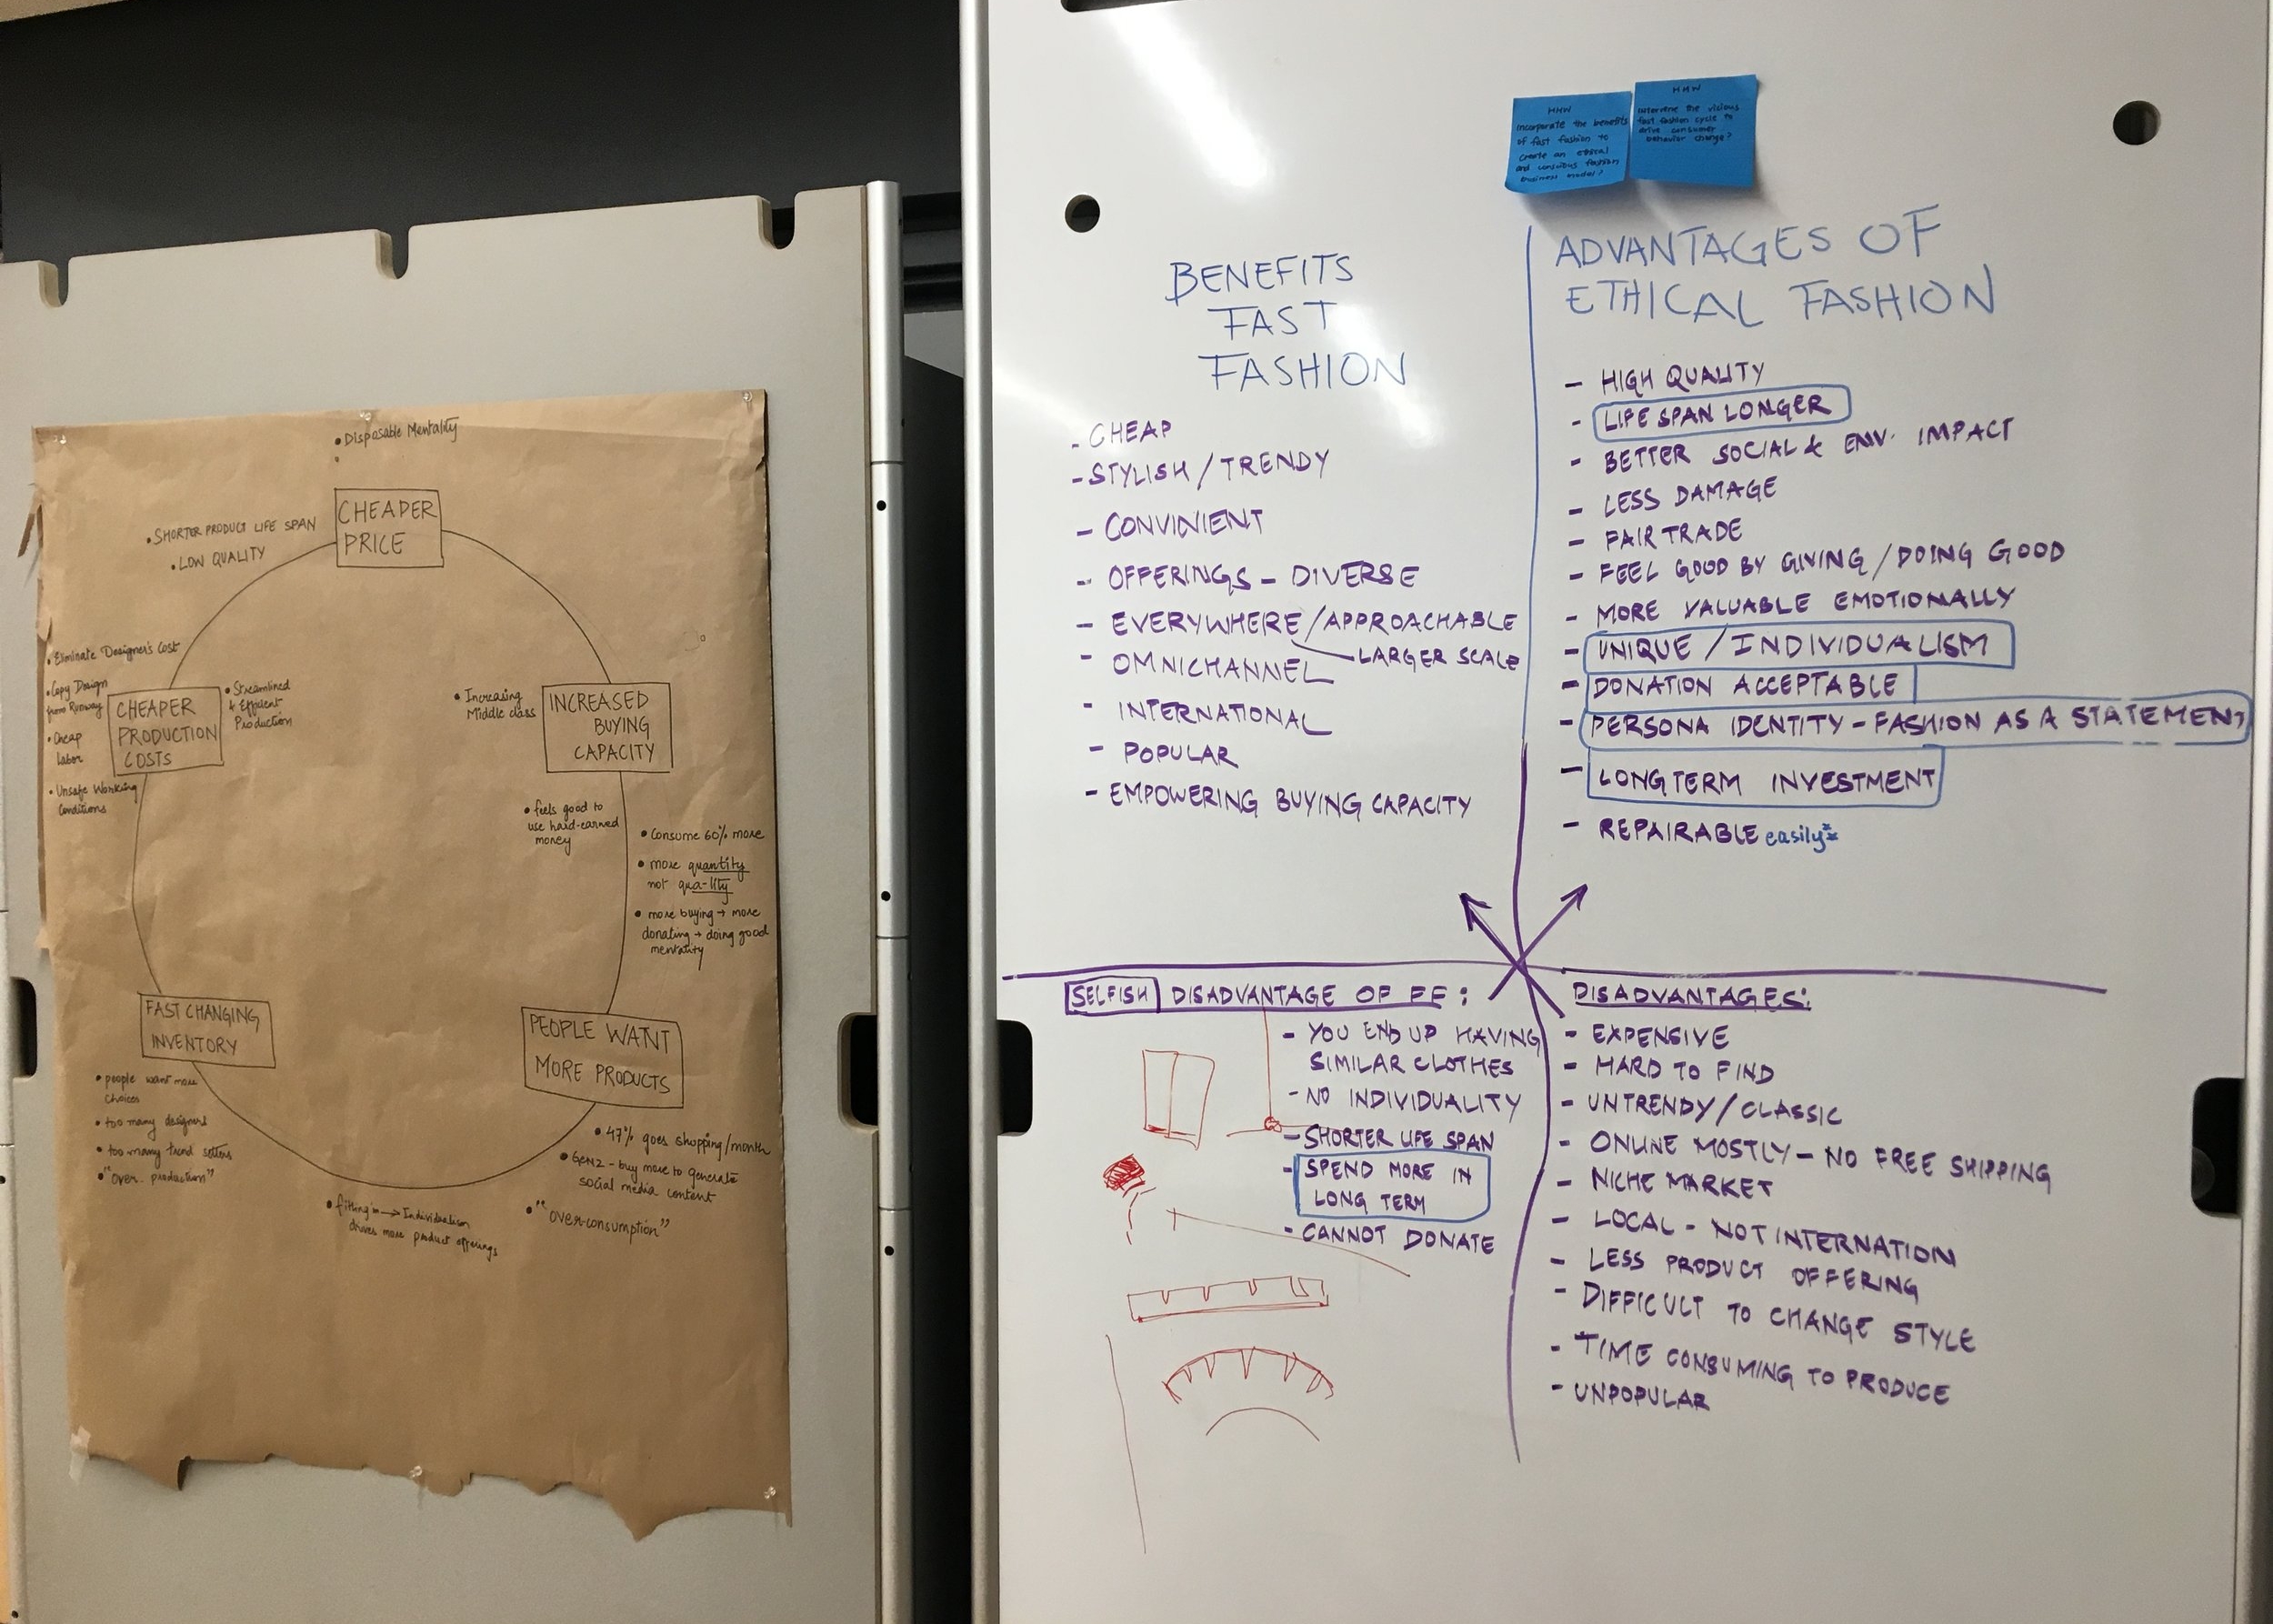 • Disposable Mentality
•
CHEAPER
PRICE
• SHORTER PRODUCT LIFE SPAN
• LOW QUALITY
• Eliminate Designer's Cost
• Copy Design
from Runway
• Cheap
labor
• Unsafe Working
Conditions
CHEAPER
PRODUCTION
COSTS
• Streamlined
& Efficient
Production
• Increasing
Middle class
INCREASED
BUYING
CAPACITY
• feels good to
use hard-earned
money
• Consume 60% more
• more quantity
not qua-lity
• more buying → more
donating → doing good
mentality
FAST CHANGING
INVENTORY
• people want more
choices
• too many designers
• too many trend setters
• "over-production"
PEOPLE WANT
MORE PRODUCTS
• 47% goes shopping/month
• GenZ - buy more to generate
social media content
• "over-consumption"
• fitting in → Individualism
drives more product offerings
HMW
incorporate the benefits
of fast fashion to
create an
and conscious fashion
business model?
HMW
intervene the vicious
fast fashion cycle to
drive consumer
behavior change?
BENEFITS
FAST
FASHION
- CHEAP
- STYLISH / TRENDY
- CONVINIENT
- OFFERINGS - DIVERSE
- EVERYWHERE / APPROACHABLE
LARGER SCALE
- OMNICHANNEL
- INTERNATIONAL
- POPULAR
- EMPOWERING BUYING CAPACITY
ADVANTAGES OF
ETHICAL FASHION
- HIGH QUALITY
- LIFE SPAN LONGER
- BETTER SOCIAL & ENV. IMPACT
- LESS DAMAGE
- FAIR TRADE
- FEEL GOOD BY GIVING / DOING GOOD
- MORE VALUABLE EMOTIONALLY
- UNIQUE / INDIVIDUALISM
- DONATION ACCEPTABLE
- PERSONA IDENTITY - FASHION AS A STATEMENT
- LONG TERM INVESTMENT
- REPAIRABLE easily**
SELFISH DISADVANTAGE OF FF:
- YOU END UP HAVING
SIMILAR CLOTHES
- NO INDIVIDUALITY
- SHORTER LIFE SPAN
- SPEND MORE IN
LONG TERM
- CANNOT DONATE
DISADVANTAGES:
- EXPENSIVE
- HARD TO FIND
- UNTRENDY/CLASSIC
- ONLINE MOSTLY - NO FREE SHIPPING
- NICHE MARKET
- LOCAL - NOT INTERNATION
- LESS PRODUCT OFFERING
- DIFFICULT TO CHANGE STYLE
- TIME CONSUMING TO PRODUCE
- UNPOPULAR